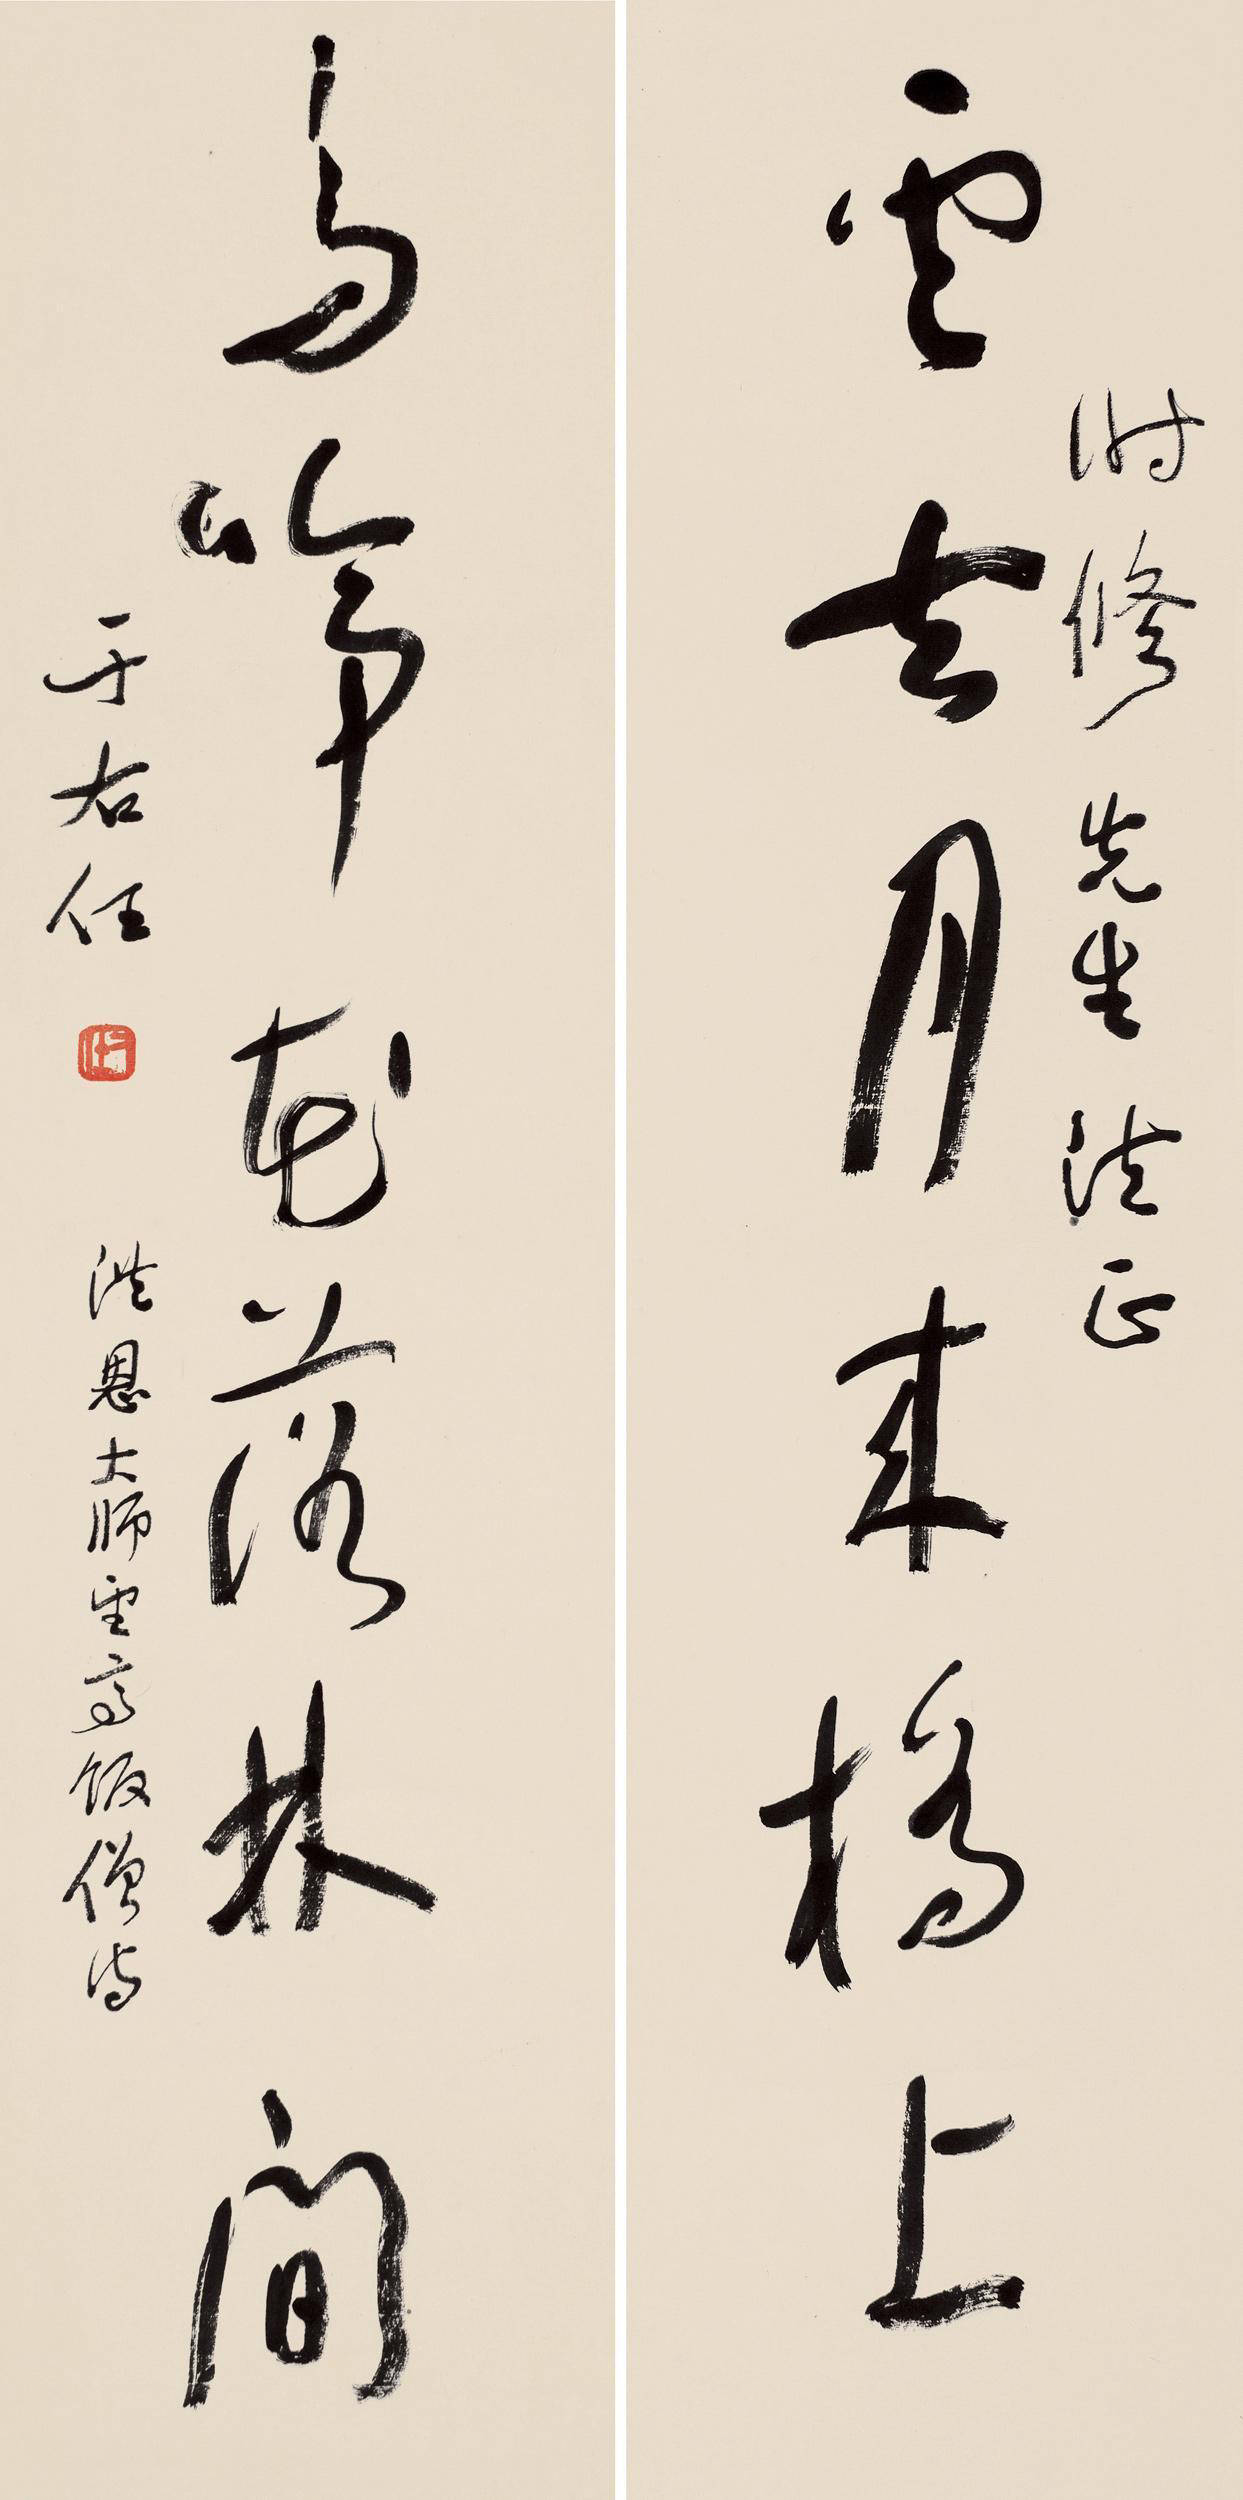 修先生法正
雲去月來橋上
鳥啼花落林間
于右任
洪恩大師望亭飯僧詩